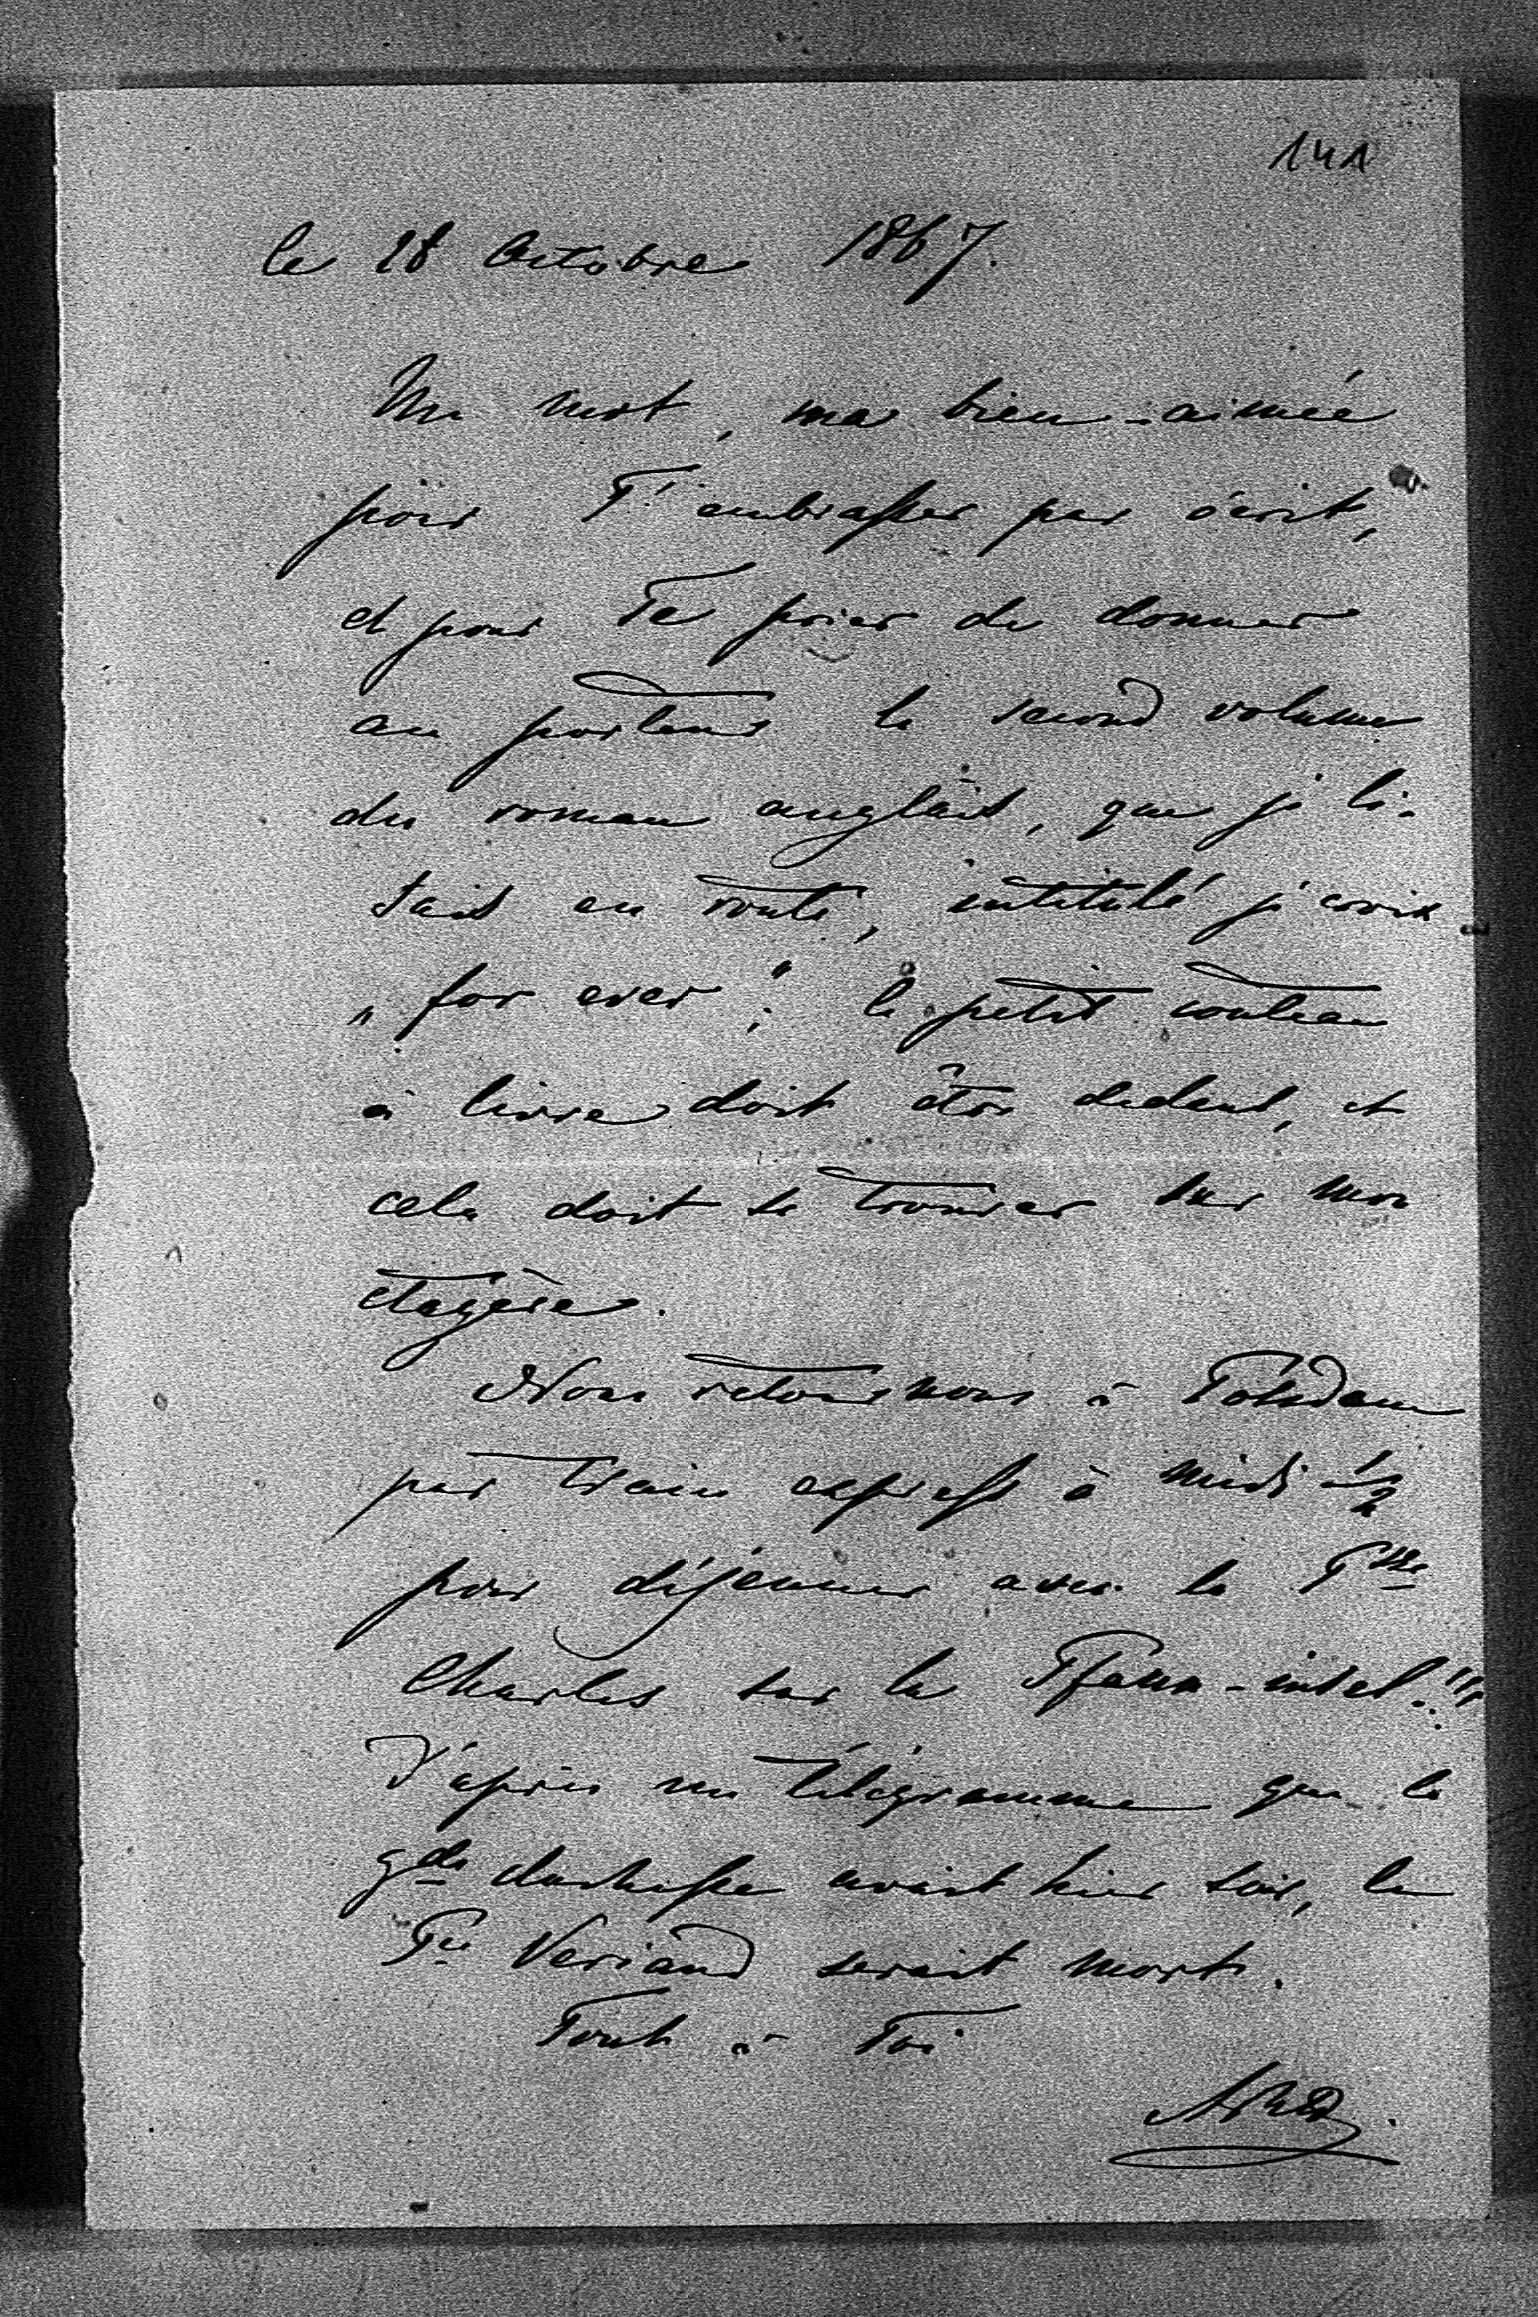 141
le 28 Octobre 1867.
Un mot, ma bien-aimée
pour T'embrasser par écrit,
et pour Te prier de donner
au porteur le second volume
du roman anglais, que je li-
sais en route, intitulé je crois
„for ever“; le petit couteau
à livre doit être dedans, et
cela doit se trouver sur mon
étagère.
Nous retournons à Potsdam
par train express à midi 1/2
pour déjeuner avec la Psse
Charles sur la Pfauen-insel.!!!
D'après un télégramme que la
gde duchesse avait hier soir, le
Pce serait mort.
Tout à Toi